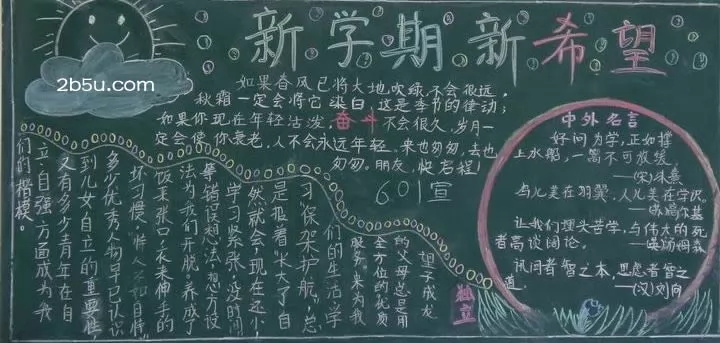 新学期新希望
2b5u.com
如果春风已将大地吹绿,不会很远,
秋霜一定会将它染白,这是季节的律动;
如果你现在年轻活泼,奋斗不会很久,岁月一
定会使你衰老,人不会永远年轻。来也匆匆,去也
匆匆。朋友,快启程!
6.01宣
望子成龙
的父母总是用
全方位的优质
服务,来为我
们的生活学
习“保架护航”,总
是报着“长大了自
然就会,现在还小,
学习紧张,没时间
等错误想法,想方设
法为我们开脱。养成了
饭来张口,衣来伸手的
坏习惯,“恃人不如自恃”
多少优秀人物早已认识
到儿女自立的重要性,
又有多少青年在自
立,自强方面成为我
们的楷模。
独立
中外名言
好问为学,正如撑
上水船,一篙不可放缓。
——(宋)朱熹
鸟儿美在羽翼,人儿美在学识。
让我们埋头苦学,与伟大的死
者高谈阔论。
讯问者智之本,思虑者智之
道。
——(汉)刘向